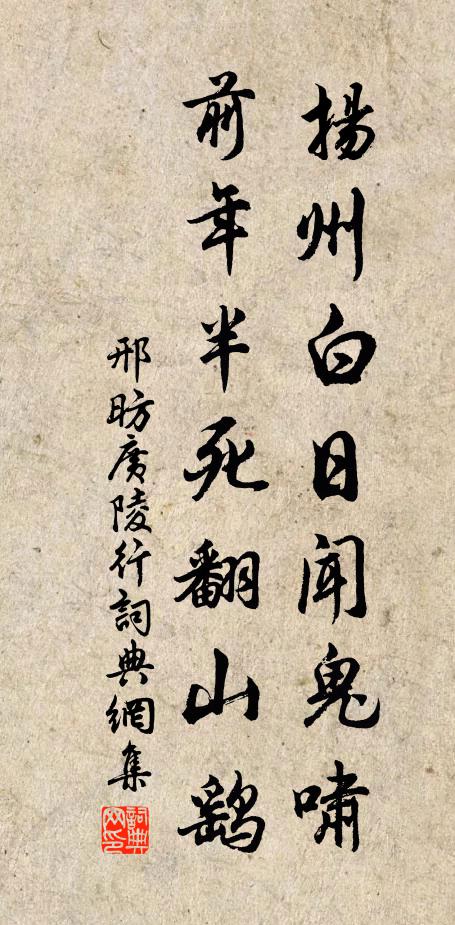 揚州白日聞鬼嘯
前年半死翻山鷂
邢昉廣陵行詞典網集
詞典網印